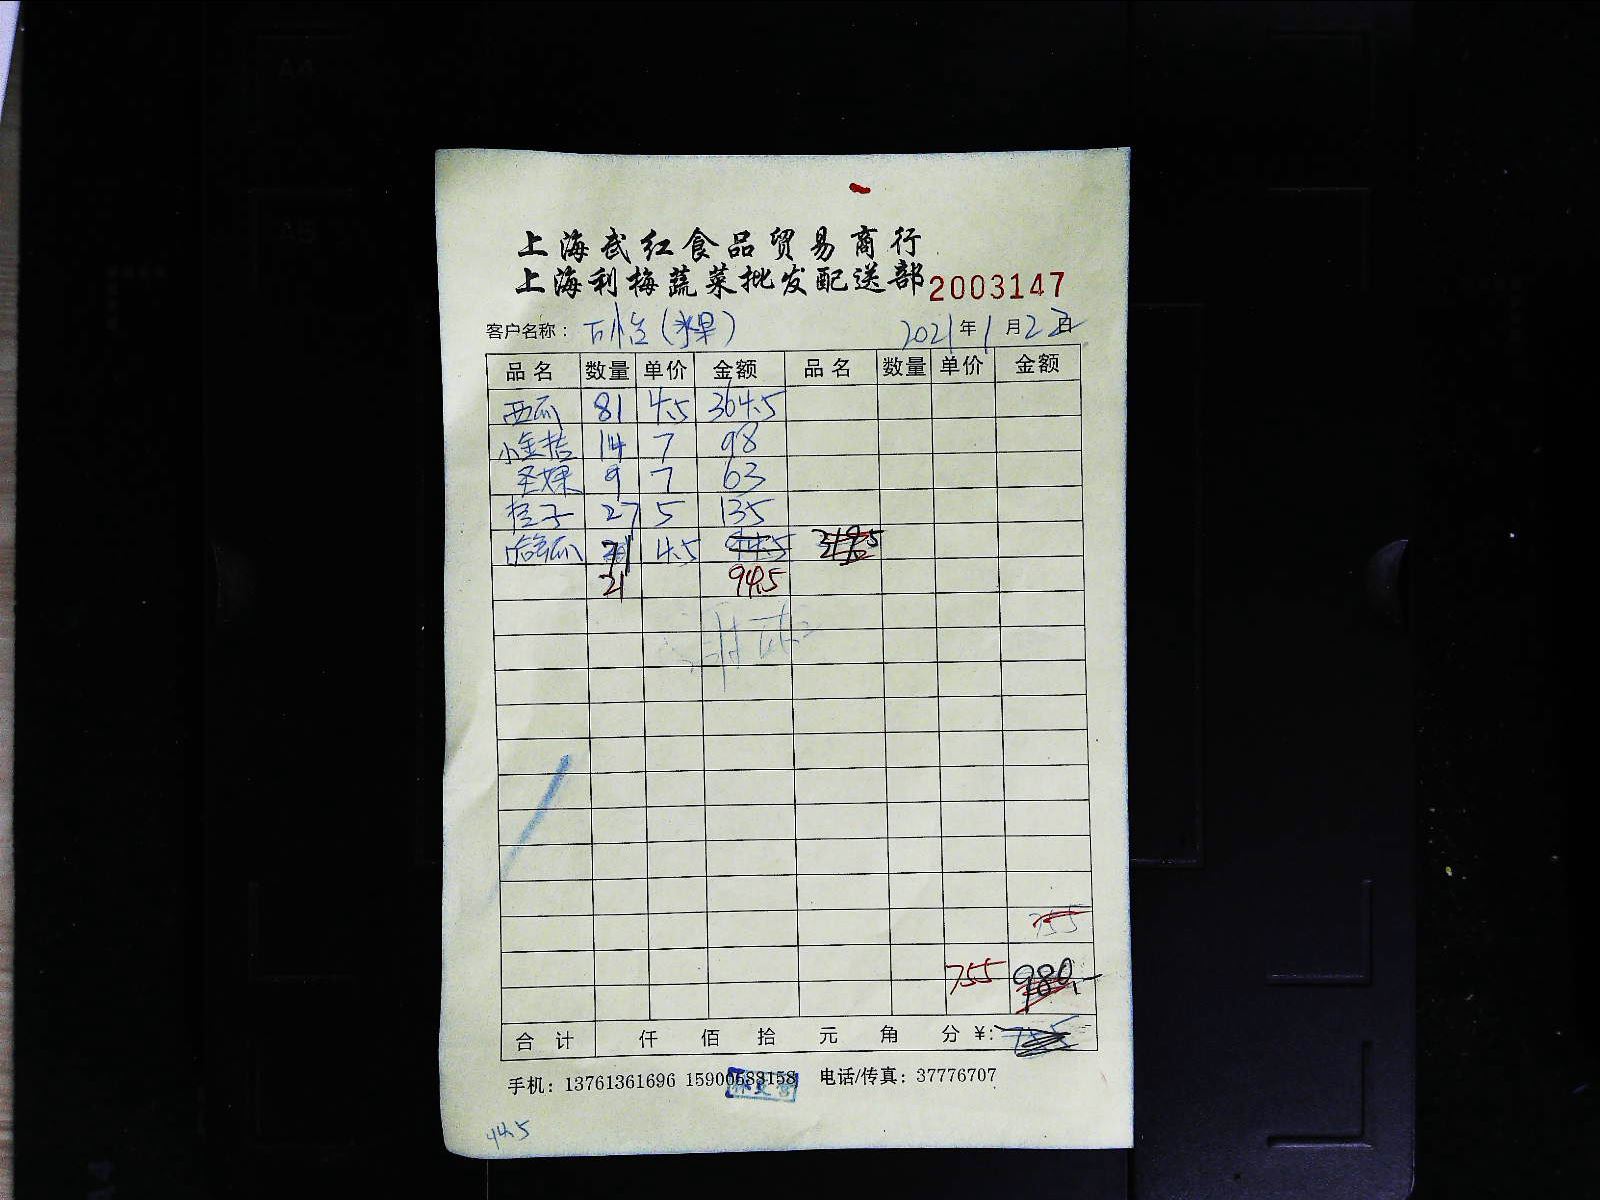 上海武红食品贸易商行
上海利梅蔬菜批发配送部 2003147
客户名称： （水果） 2021年1月22日
品名 数量 单价 金额 品名 数量 单价 金额
西瓜 81 4.5 364.5
小金桔 14 7 98
圣女果 9 7 63
桔子 27 5 135
哈密瓜 71 4.5 94.5
21 94.5
755
755 980.-
合计 仟 佰 拾 元 角 分 ¥: 755
手机：13761361696 15900683158 电话/传真：37776707
94.5